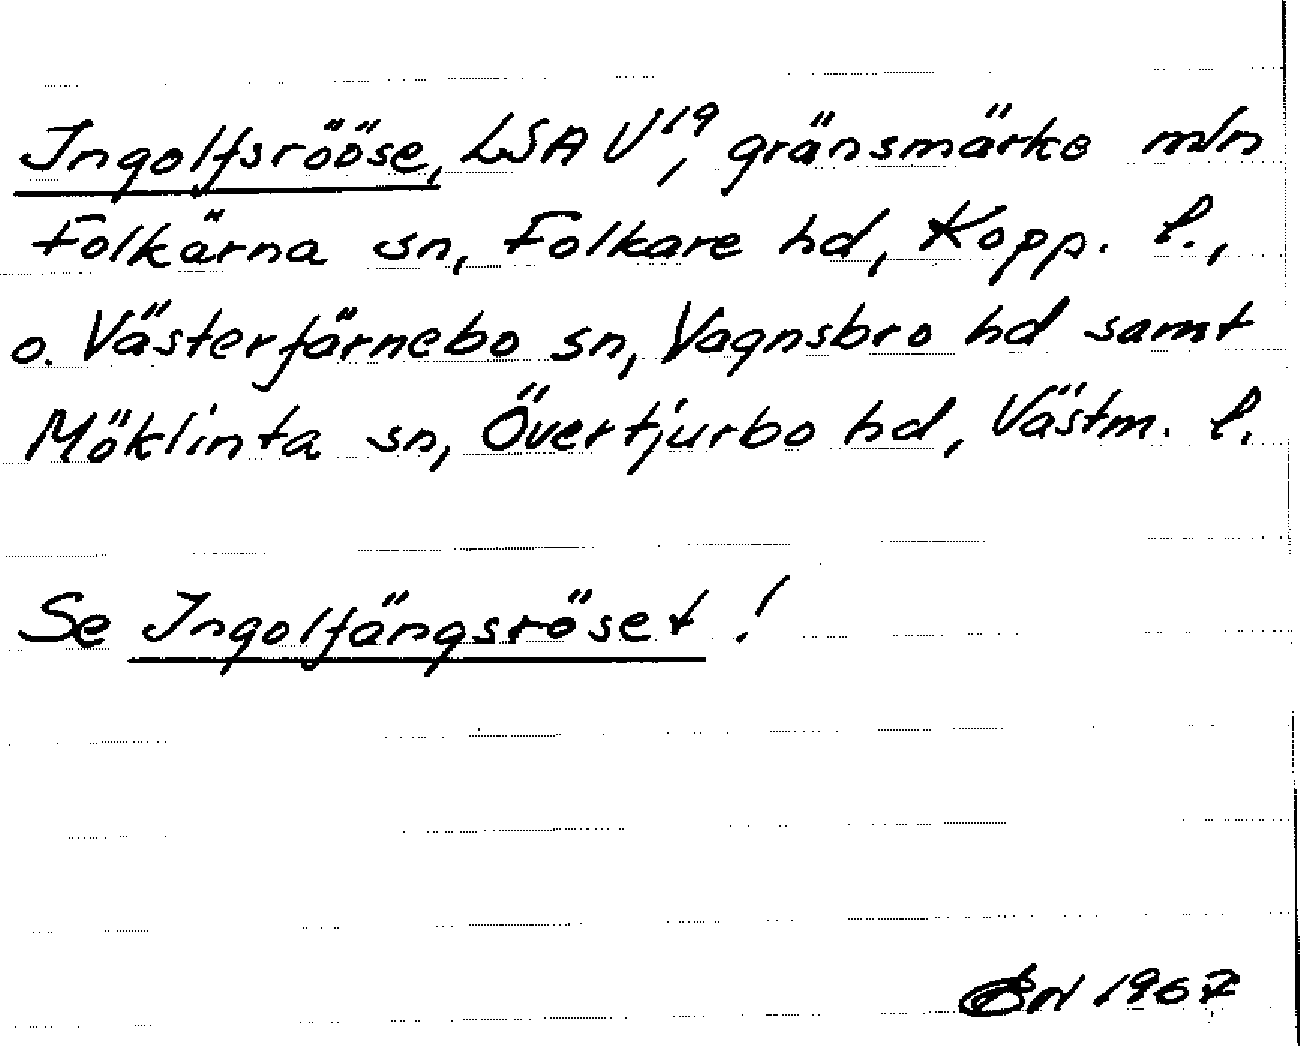 Ingolfsrööse, LSA V¹⁹, gränsmärke m/n
Folkärna sn, Folkare hd, Kopp. l.,
o. Västerfärnebo sn, Vagnsbro hd samt
Möklinta sn, Övertjurbo hd, Västm. l.
Se Ingolfängsröset!
1967